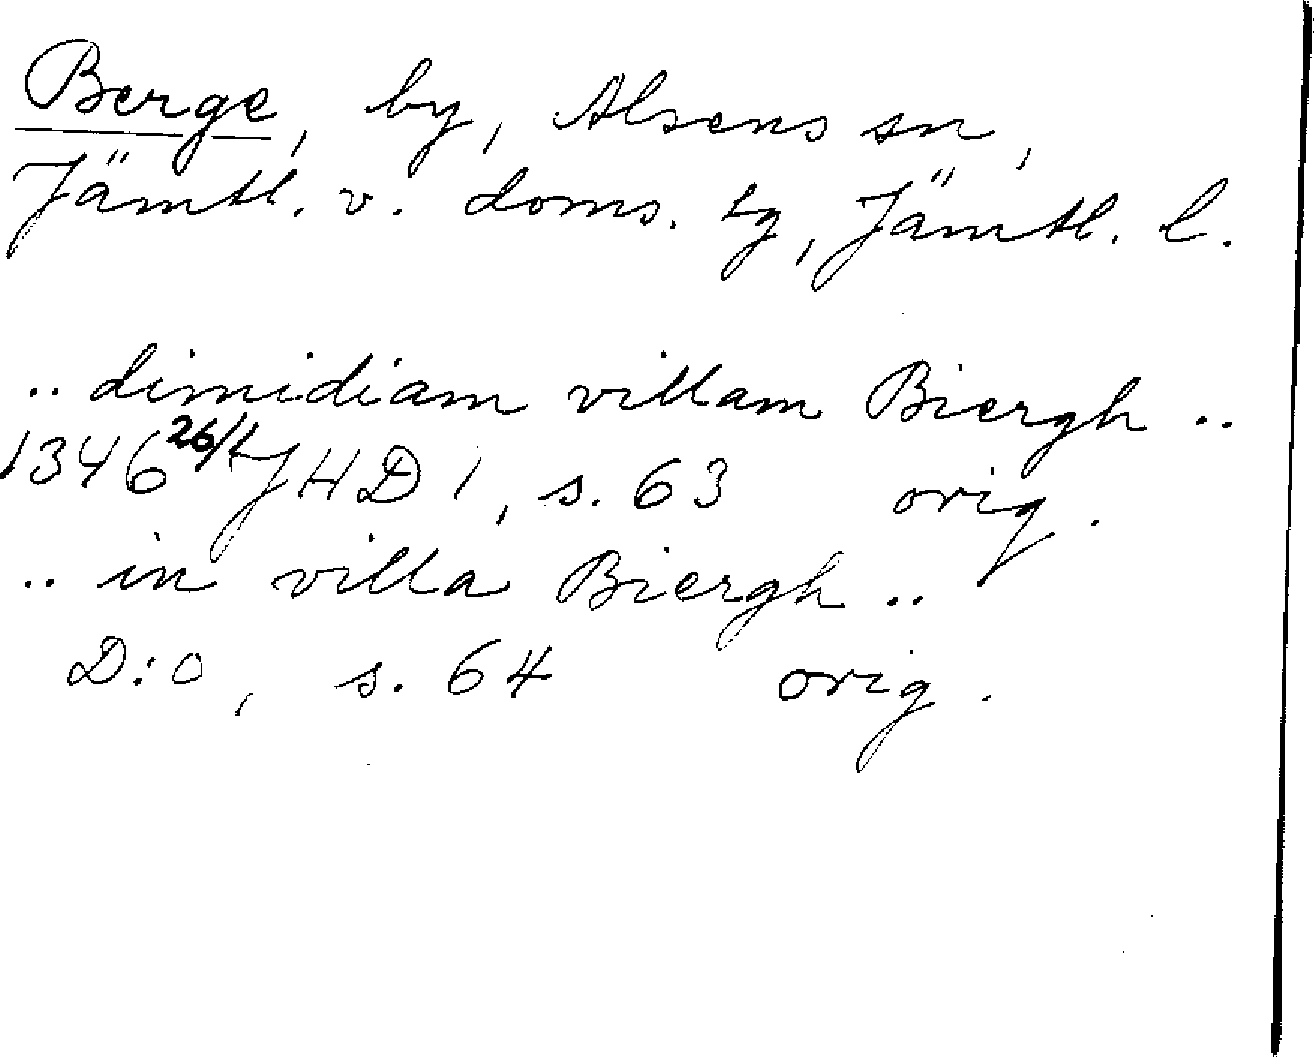 Berge, by, Alsens sn,
Jämtl. v. doms. tg, Jämtl. l.
.. dimidiam villam Biergh ..
1346 26/1 JHD 1, s. 63 orig.
.. in villa Biergh ..
D:o, s. 64 orig.